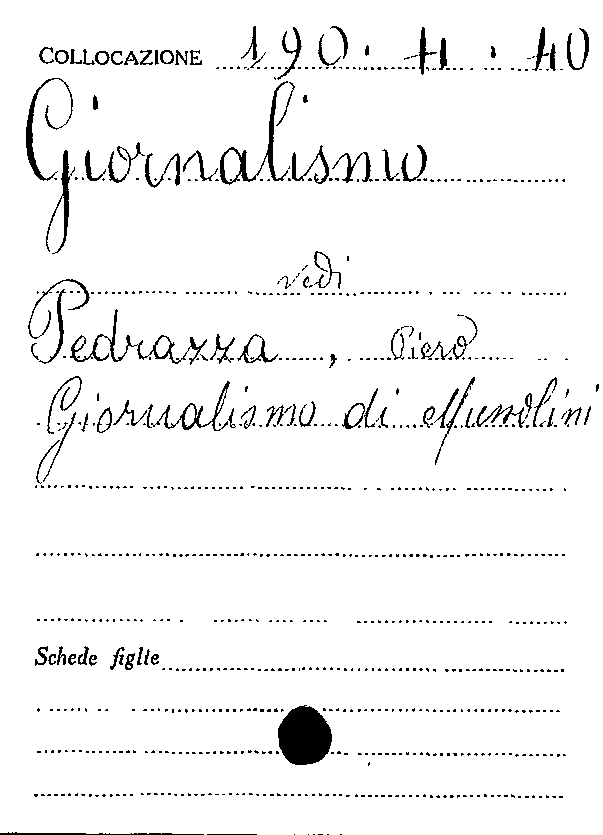 COLLOCAZIONE 190. H. 40
Giornalismo
vedi
Pedrazza, Piero
Giornalismo di Mussolini
Schede figlie